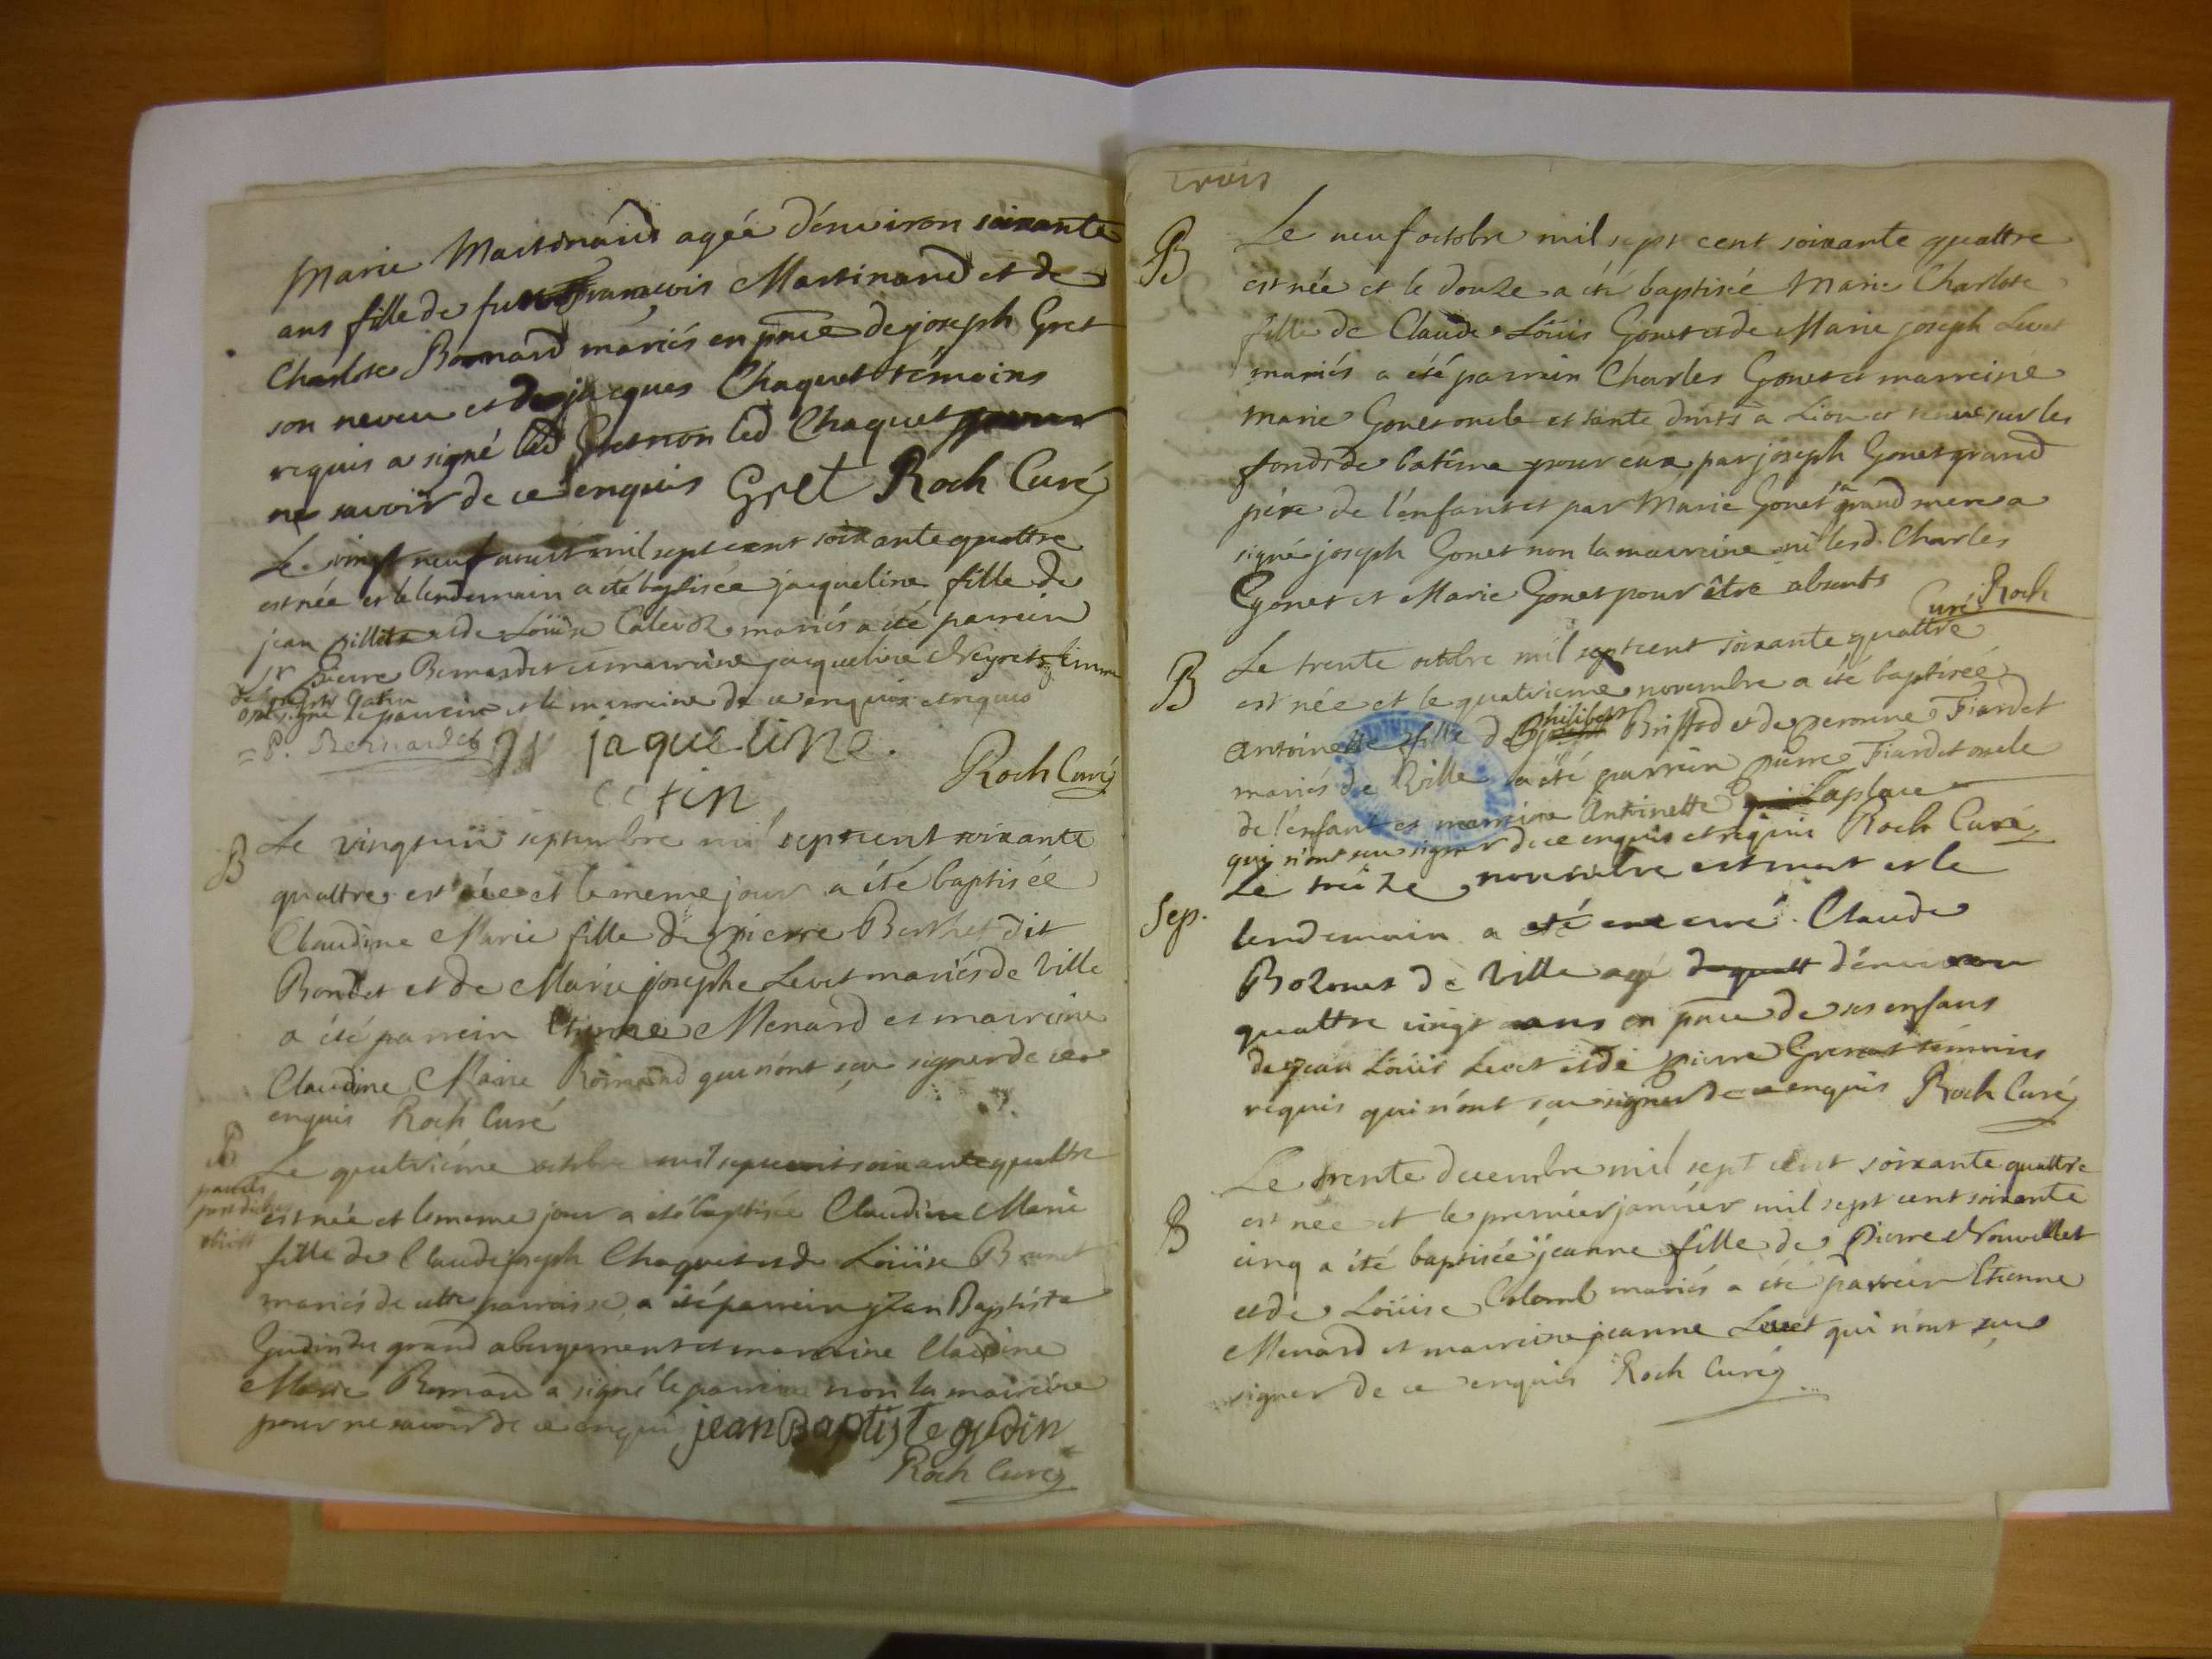 Marie Martinand agée d'environ soixante
ans fille de fu françois Martinand et de
Charlote Bornard mariés en pnce de joseph Gret
son neveu et de jacques Chaquet témoins
requis a signé led Gret non led Chaquet pour
ne savoir de ce enquis Gret Roch Curé
Le vingt neuf aoust mil sept cent soixante quattre
est née et le lendemain a été baptisée jacqueline fille de
jean et de Loüise mariés a été parrein
Sr Pierre Bernardet et marreine jacqueline femme
de
ont signé le parrein et la marreine de ce enquis et requis
P. Bernardet jaqueline
Roch Curé
B
Le vingt septembre mil sept cent soixante
quattre est née et le meme jour a été baptisée
Claudine Marie fille de pierre Berthet dit
Bondet et de Marie josephe Levet mariés de Ville
a été parrein Etienne Menard et marreine
Claudine Marie qui n'ont sçu signer de ce
enquis Roch Curé
B
Le quatriéme octobre mil sept cent soixante quattre
est née et le meme jour a été baptisée Claudine Marie
fille de Claude joseph Chaquet et de Loüise
mariés de cette parroisse a été parrein jean Baptiste
Gudin du grand abergement et marreine Claudine
Marie a signé le parrein non la marreine
pour ne savoir de ce enquis jean Baptiste gudin
Roch Curé
trois
B
Le neuf octobre mil sept cent soixante quattre
est née et le douze a été baptisée Marie Charlote
fille de Claude Loüis Gonet et de Marie joseph Levet
mariés a été parrein Charles Gonet et marreine
Marie Gonet oncle et tante à Lion et tenue sur les
fonds de batême pour eux par joseph Gonet grand
pére de l'enfant et par Marie Gonet sa grand mere a
signé joseph Gonet non la marreine ni lesd. Charles
Gonet et Marie Gonet pour être absents
Roch Curé
B
Le trente octobre mil sept cent soixante quattre
est née et le quatrieme novembre a été baptisée
Antoinette fille de philibert Briffod et de peronne Fiardet
mariés de Ville a été parrein pierre Fiardet oncle
de l'enfant et marreine Antoinette Laplace
qui n'ont sçu signer de ce enquis et requis Roch Curé
Sep.
Le treize novembre est mort et le
lendemain a été enterré Claude
Bozonet de Ville agé d'environ
quattre vingt ans en pnce de ses enfans
de jean Loüis Levet et de pierre témoins
requis qui n'ont sçu signer de ce enquis Roch Curé
B
Le trente decembre mil sept cent soixante quattre
est née et le premier janvier mil sept cent soixante
cinq a été baptisée jeanne fille de Pierre Nouvellet
et de Loüise Colomb mariés a été parrein Etienne
Menard et marreine jeanne Levet qui n'ont sçu
signer de ce enquis Roch Curé